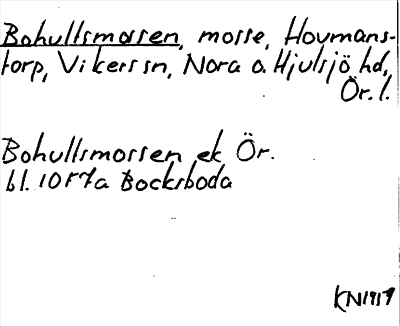 Bohultsmossen, mosse, Hovmans-
torp, Vikers sn, Nora o. Hjulsjö hd,
Ör. l.
Bohultsmossen ek Ör.
bl. 10 F7a Bocksboda